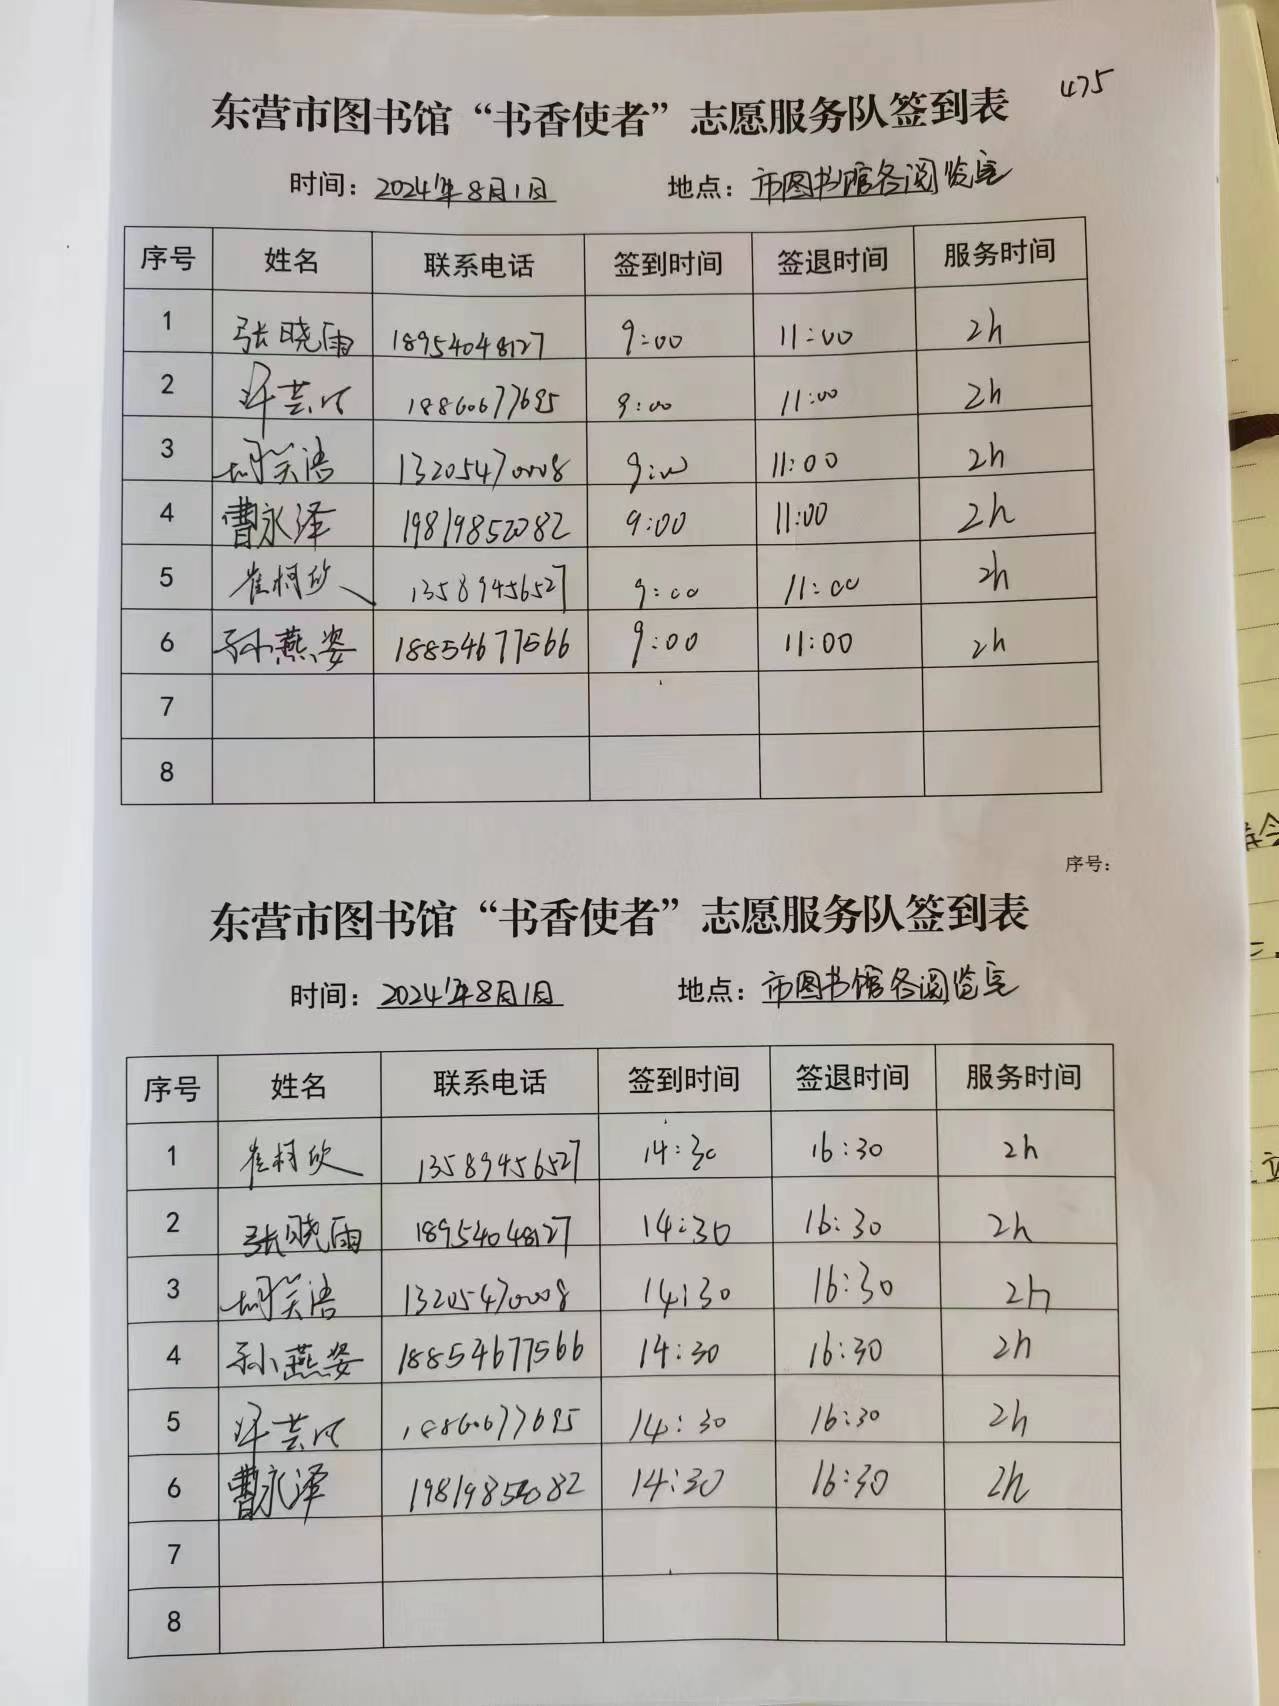 475
东营市图书馆“书香使者”志愿服务队签到表
时间：2024年8月1日 地点：市图书馆各阅览室
序号 姓名 联系电话 签到时间 签退时间 服务时间
1 张晓雨 18954048127 9:00 11:00 2h
2 18860677695 9:00 11:00 2h
3 13205470008 9:00 11:00 2h
4 曹永泽 19819852082 9:00 11:00 2h
5 崔柯欣 13589456527 9:00 11:00 2h
6 孙燕姿 18854677566 9:00 11:00 2h
7
8
序号：
东营市图书馆“书香使者”志愿服务队签到表
时间：2024年8月1日 地点：市图书馆各阅览室
序号 姓名 联系电话 签到时间 签退时间 服务时间
1 崔柯欣 13589456527 14:30 16:30 2h
2 张晓雨 18954048127 14:30 16:30 2h
3 13205470008 14:30 16:30 2h
4 孙燕姿 18854677566 14:30 16:30 2h
5 18860677695 14:30 16:30 2h
6 曹永泽 19819852082 14:30 16:30 2h
7
8